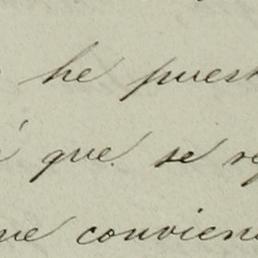 he puest
que se re
ue conviene